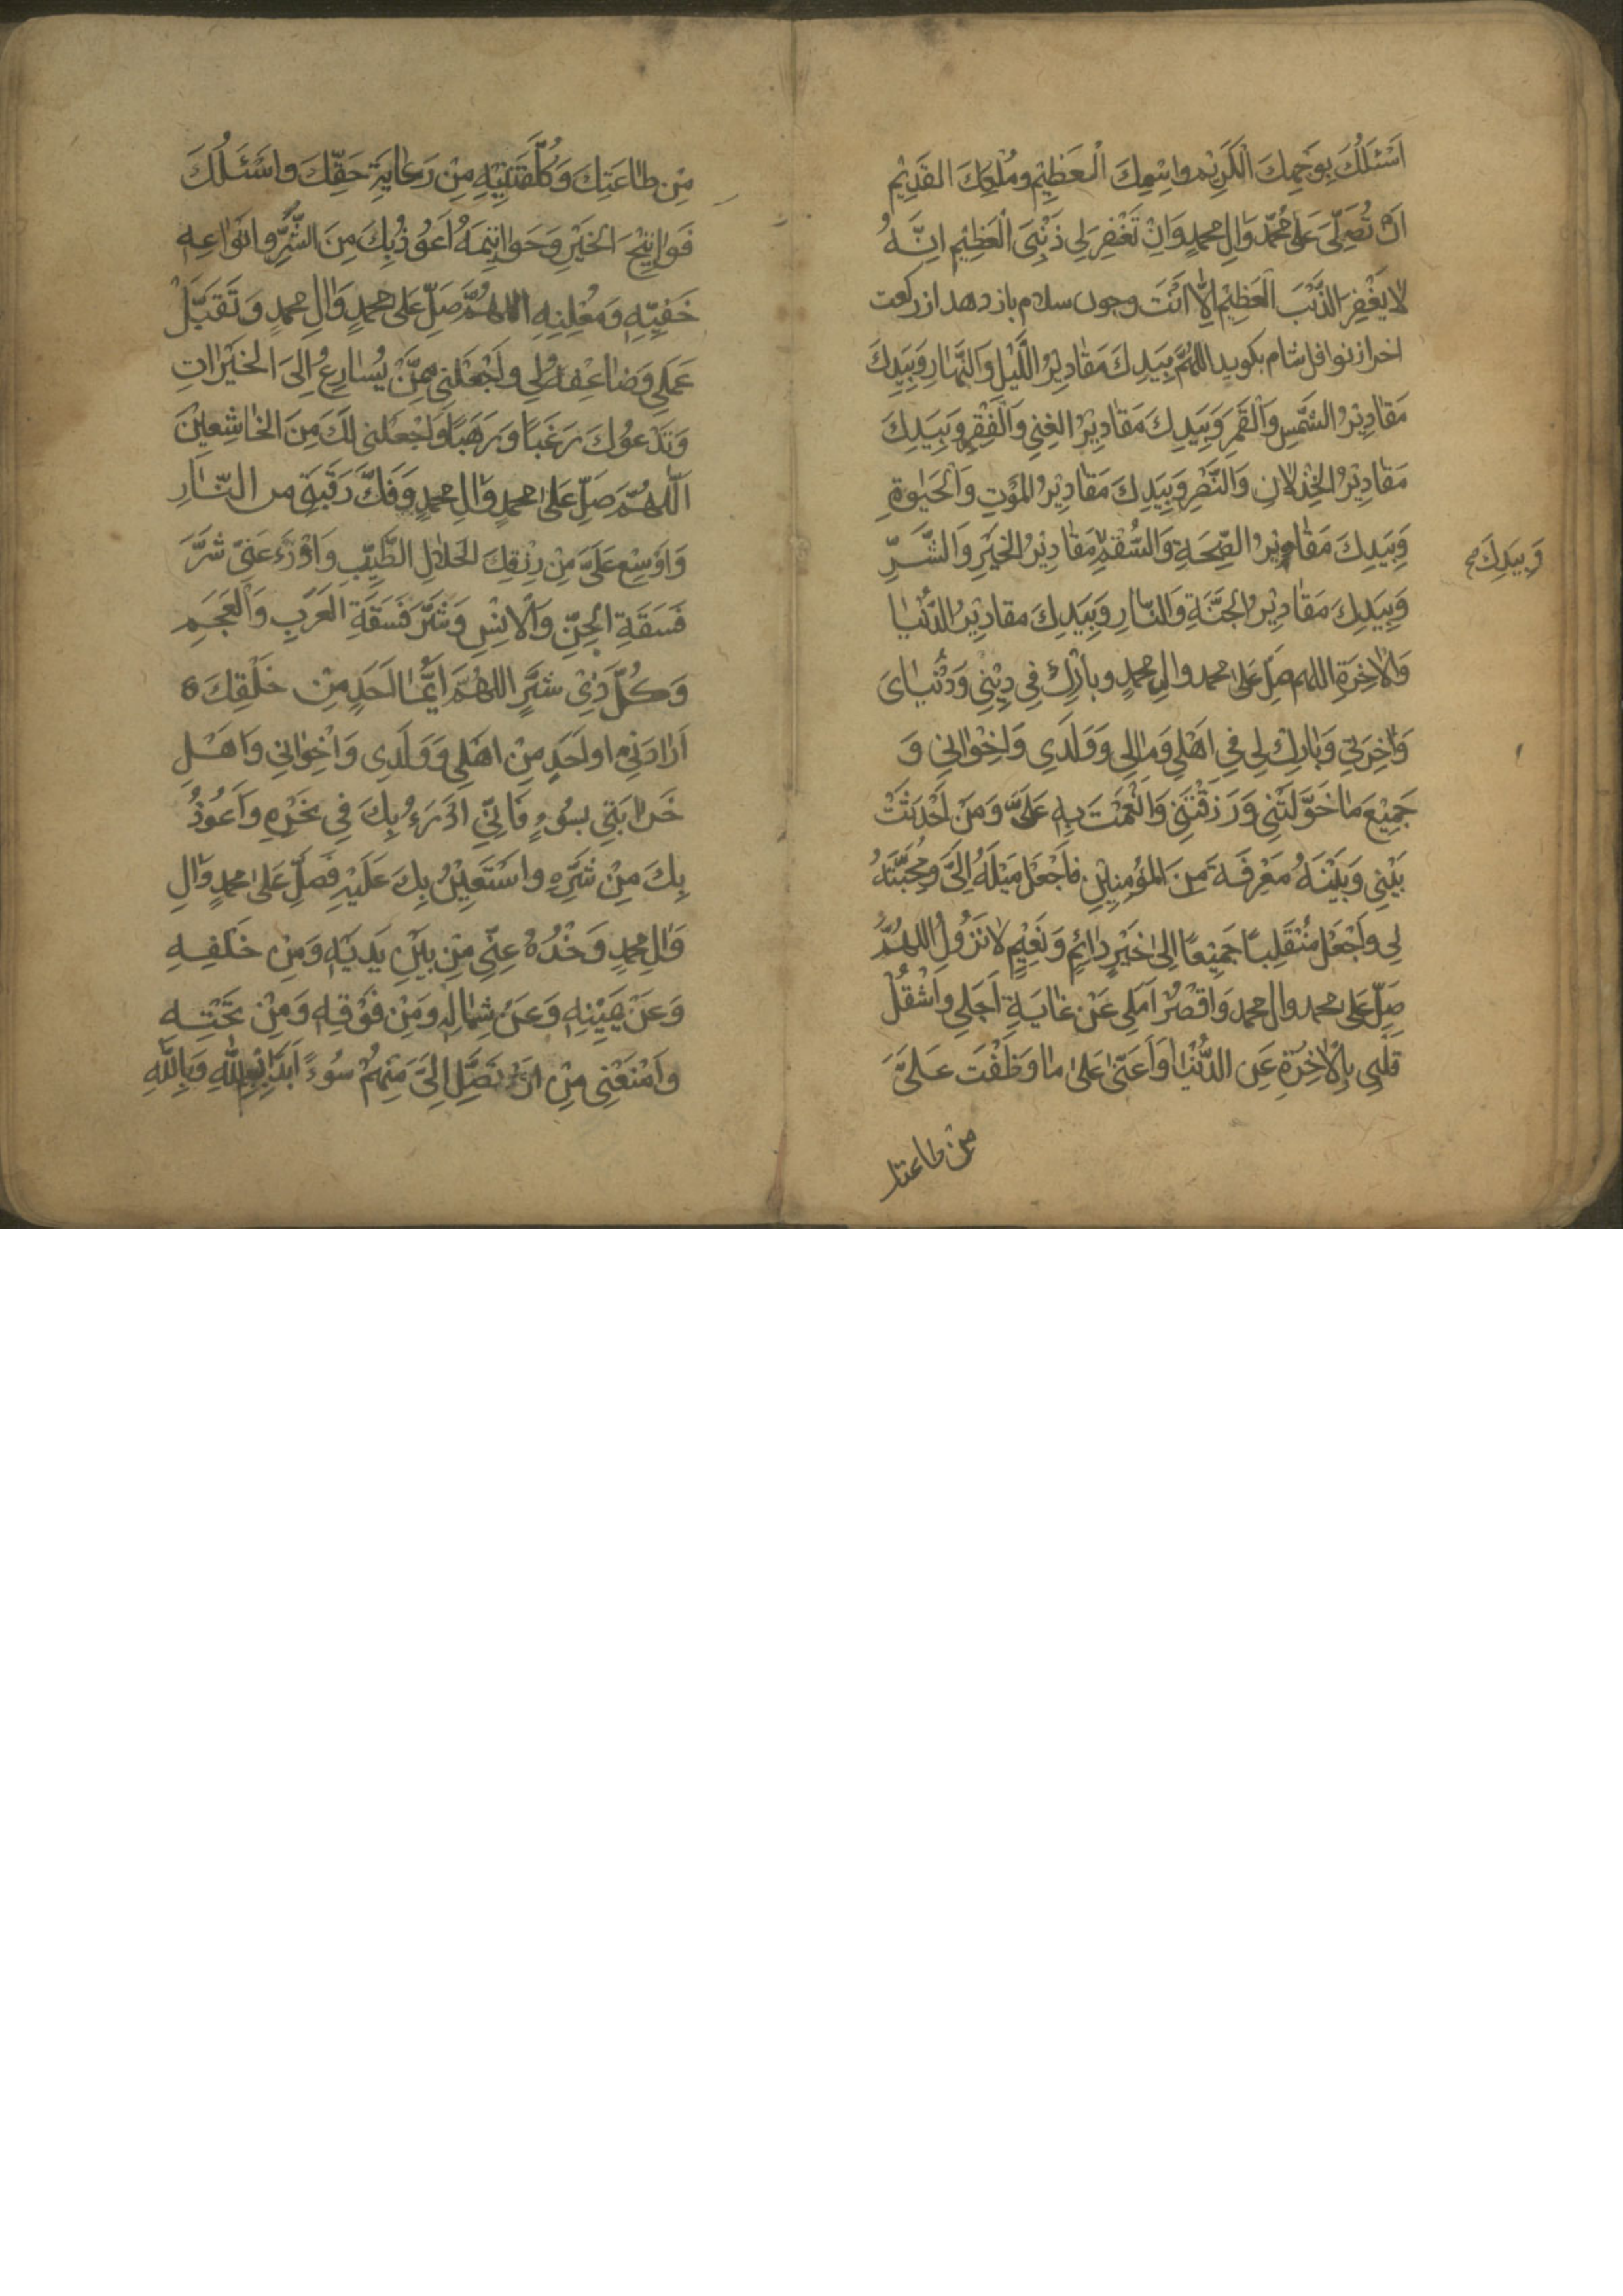 اَسْئَلُكَ بِوَجْهِكَ الْكَرِيْمِ وَاسْمِكَ الْعَظِيْمِ وَمُلْكِكَ الْقَدِيْمِ
اَنْ تُصَلِّىَ عَلىٰ مُحَمَّدٍ وَالِ محمدٍ وَانْ تَغْفِرَ لِى ذَنْبِىَ الْعَظِيْمِ اِنَّهُ
لا يَغْفِرُ الذَّنْبَ الْعَظِيْمَ اِلّا اَنْتَ وچون سلام باز دهد از ركعت
اخر از نوافل شام بكويد اللهُمَّ بِيَدِكَ مَقادِيْرُ اللَّيْلِ وَالنَّهارِ وَبِيَدِكَ
مَقادِيْرُ الشَّمْسِ وَالْقَمَرِ وَبِيَدِكَ مَقادِيْرُ الْغِنى وَالْفَقْرِ وَبِيَدِكَ
مَقادِيْرُ الْخِذْلانِ وَالنَّصْرِ وَبِيَدِكَ مَقادِيْرُ المَوْتِ وَالْحَيٰوةِ
وَبِيَدِكَ مَقاديْرُ الصِّحَةِ وَالسُّقْمِ مَقادِيْرُ الخَيْرِ وَالشَّرِّ
وَبِيَدِكَ
وَبِيَدِكَ مَقادِيْرُ الجَنَّةِ وَالنّارِ وَبِيَدِكَ مقادِيْرُ الدُّنْيا
وَالاخِرَةِ اللهم صَلِّ عَلىٰ محمد وال محمدٍ وبارِكْ فِى دِيْنِى وَدُنْياىَ
وَاخِرَتِى وَبارِكْ لِى فِى اهْلِى وَمالِى وَوَلَدِى وَاخِوْانِى وَ
جَمِيْعِ مَا خَوَّلْتَنِى وَرَزَقْتَنِى وَانْعَمْتَ بِهِ عَلَىَّ وَمَنْ اَحْدَثْتَ
بَيْنِى وَبَيْنَهُ مَعْرِفَةً مِنَ المُؤْمِنِيْنِ فاجْعَلْ مَيْلَهُ اِلَىَّ وَمُحَبَّتَهُ
لِى واجْعَلْ مُنْقَلِبَنا جَمِيْعًا اِلىٰ خَيْرٍ دائِمٍ وَنَعِيْمٍ لا يَزُولُ اللهُمَّ
صَلِّ عَلى محمد وال محمد وَاقْصُرْ اَمَلِى عَنْ غايَةِ اَجَلِى وَاشْغُلْ
قَلْبِى بِالاخِرَةِ عَنِ الدُّنْيا وَاَعِنّى عَلىٰ ما وَظَّفْتَ عَلَىَّ
من طاعتك
مِنْ طاعَتِكَ وَكَلَّفْتَنِيْهِ مِنْ رِعايَةِ حَقِّكَ واسْئَلُكَ
فَواتِيْحَ الْخَيْرِ وَخَواتِيْمَهُ اَعُوذُ بِكَ مِنَ الشَّرِّ وانْواعِهِ
خَفِيِّهِ وَمُعْلِنِهِ اللهُمَّ صَلِّ عَلى محمدٍ وَالِ محمدٍ وَتَقَبَّلْ
عَمَلِى وَضاعِفْهُ لِى واجْعَلْنِى مِمَّنْ يُسارِعُ اِلىَ الْخَيْراتِ
وَيَدْعُوكَ رَغَبًا وَرَهَبًا وَاجْعَلْنِى لَكَ مِنَ الخاشِعِيْنَ
اَللّهُمَّ صَلِّ عَلىٰ محمدٍ وَالِ محمدٍ وَفُكَّ رَقَبَتِى من النّارِ
وَاَوْسِعْ عَلَىَّ مِنْ رِزْقِكَ الحَلالِ الطَّيِّبِ وَادْرَءْ عَنِّى شَرَّ
فَسَقَةِ الْجِنِّ وَالْانْسِ وَشَرَّ فَسَقَةِ العَرَبِ وَالْعَجَمِ
وَكُلِّ ذِىْ شَرٍّ اللهُمَّ اَيُّما اَحَدٍ مِنْ خَلْقِكَ
اَرادَنِى او اَحَدٍ مِنْ اهْلِى وَوَلَدِى وَاخْوانِى وَاهْلِ
حُزانَتِى بِسُوءٍ فَانِّى اَدْرَءُ بِكَ فِى نَحْرِهِ وَاَعُوذُ
بِكَ مِنْ شَرِّهِ واسْتَعِيْنُ بِكَ عَلَيْهِ فَصَلِّ عَلىٰ محمدٍ وَالِ
وَالِ محمدٍ وَخُذْهُ عَنِّى مِنْ بَيْنِ يَدَيْهِ وَمِنْ خَلْفِهِ
وَعَنْ يَمِيْنِهِ وَعَنْ شِمالِهِ وَمِنْ فَوْقِهِ وَمِنْ تَحْتِهِ
وامْنَعْنِى مِنْ اَنْ يَصِلَ اِلَىَّ مِنْهُمْ سُوءٌ اَبَدًا بِسْمِ اللهِ وَبِاللهِ